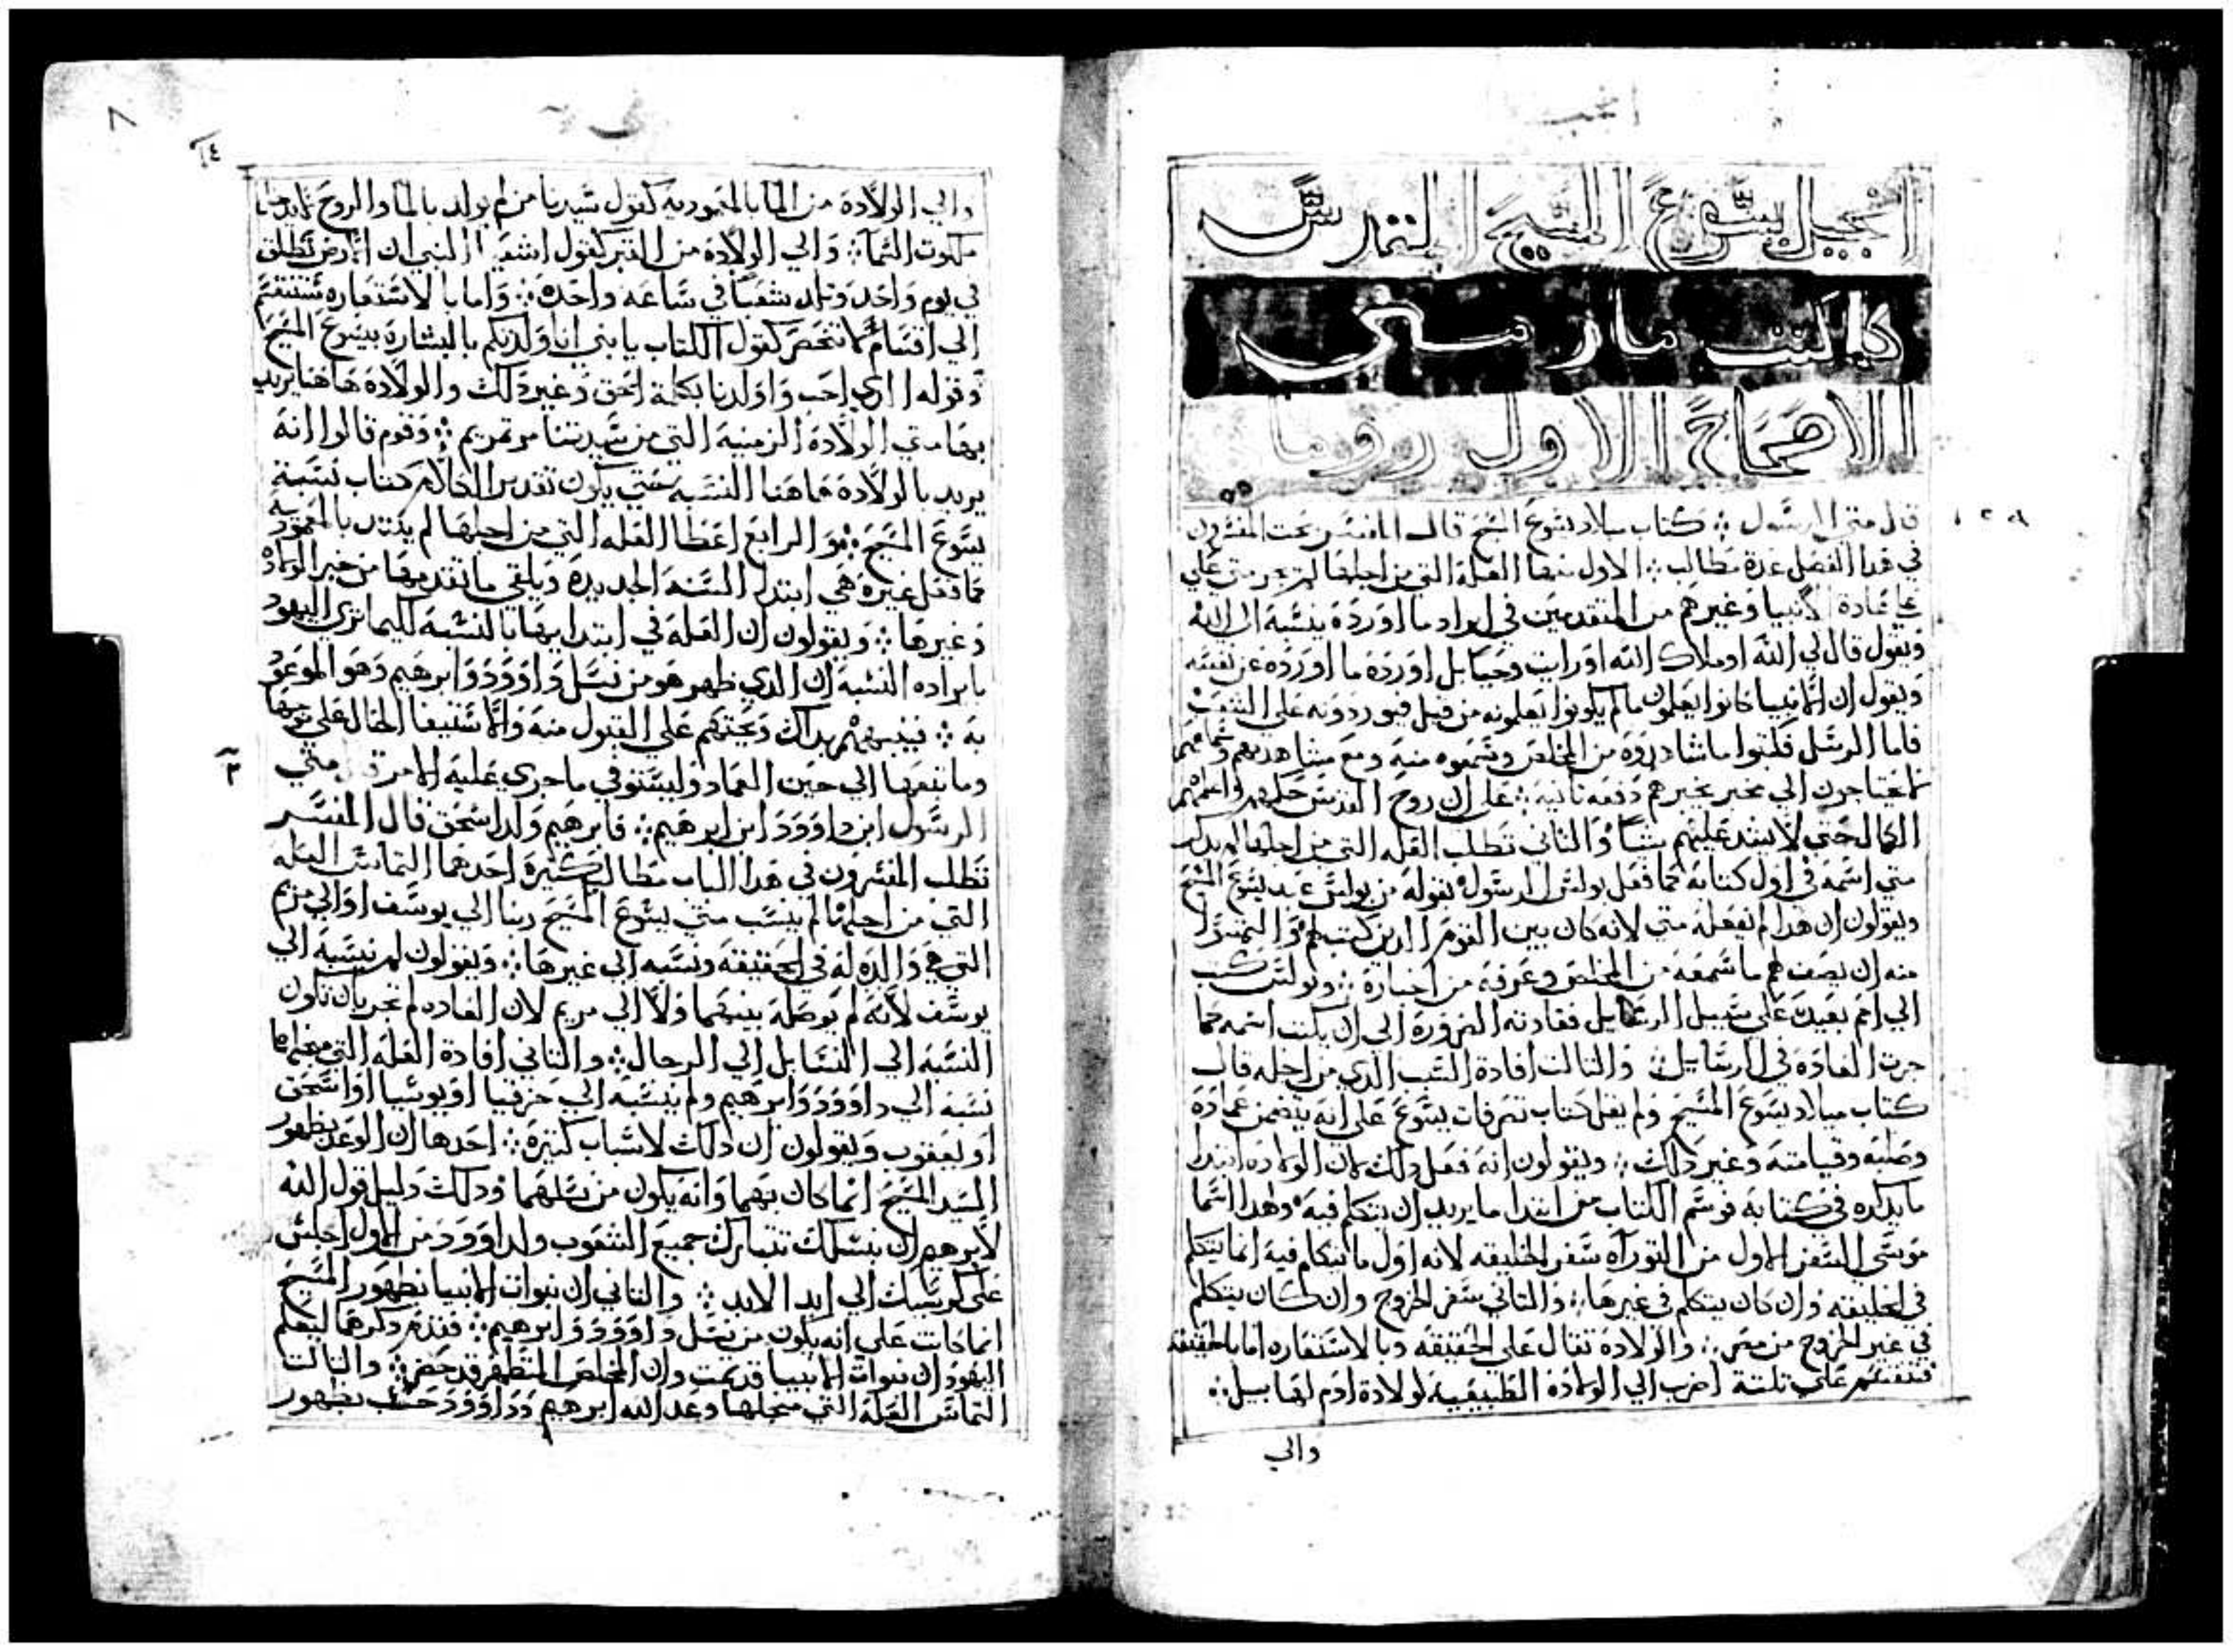 انجيل يسوع المسيح المقدس
كما كتب مار متى
الاصحاح الاول روما
قال متي الرسول ܀ كتاب ميلاد يسوع المسيح قال المفسر يبحث المفسرون
في هدا الفصل عدة مطالب ܀ الاول منها العلة التي من اجلها لم يجر متي علي
عادة الانبيا وغيرهم من المتقدمين في ايراد ما اورده ينسبه الي الله
ويقول قال لي الله او ملاك الله او رايت وحيا بل اورده ما اورده عن نفسه
ويقول ان الانبيا كانوا يعلمون ما لم يكونوا يعلمونه من قبل فيوردونه علي الشعب
فاما الرسل فكتبوا ما شاهدوه من المخلص وسمعوه منه ومع مشاهدتهم وسماعهم
لا يحتاجون الي مخبر يخبرهم دفعه تانيه ܀ علي ان روح القدس حل بهم واعطاهم
الكمال حتي لا يشد عليهم شيا والتاني تطلب العله التي من اجلها لم يدكر
متي اسمه في اول كتابه كما فعل بولس الرسول بقوله من بولس عبد يسوع المسيح
ويقولون ان هدا لم يفعله متي لانه كان بين القوم الدين كتب لهم والتمسوا
منه ان يصف لهم ما سمعه من المخلص وعرفه من اخباره ܀ وبولس كتب
الي امم بعيدة علي سبيل الرسايل فقادته الضرورة الي ان يكتب اسمه كما
جرت العادة في الرسايل ܀ والتالت افادة السبب الدي من اجله قال
كتاب ميلاد يسوع المسيح ولم يقل كتاب تصرفات يسوع علي انه يتضمن عماده
وصلبه وقيامته وغير دلك ܀ ويقولون انه فعل دلك لان الولاده ابتدا
ما يدكره في كتابه فوسم الكتاب من ابتدا ما يريد ان يتكلم فيه ولهدا اسما
موسي السفر الاول من التوراه سفر الخليقه لانه اول ما يتكلم فيه انما يتكلم
في الخليقه وان كان يتكلم في غيرها ܀ والتاني سفر الخروج وان كان يتكلم
في غير الخروج من مصر ܀ والولادة تقال علي الحقيقه وبالاستعاره اما بالحقيقه
فتنقسم علي تلتة اضرب الي الولادة الطبيعيه لولادة ادم لهابيل ܀
والي
٨
١٤
والي الولادة من الما بالمعموديه كقول سيدنا من لم يولد بالما والروح
ملكوت السما ܀ والي الولادة من القبر كقول اشعيا النبي ان الارض تطلق
في يوم واحد وتلد شعبا في ساعه واحده ܀ واما بالاستعاره فتنقسم
الي اقسام لا تحصر كقول الكتاب يا بني انا ولدتكم بالبشارة بيسوع المسيح
وقوله احب واولدنا بكلمة الحق وغير دلك والولادة هاهنا يريد
بها متي الولادة الزمنيه التي من سيدتنا مرتمريم ܀ وقوم قالوا انه
يريد بالولادة هاهنا النسبه حتي يكون تقدير الكلام كتاب نسبة
يسوع المسيح ܀ والرابع اعطا العله التي من اجلها لم يبتدي بالمعموديه
كما فعل غيره هي ابتدا السنه الجديدة ويلقي ما تقدمها من خبر الولادة
وغيرها ܀ ويقولون ان العلة في ابتدايه بالنسبه لكيما يري اليهود
بايراده النسبه ان الدي ظهر هو من نسل داوود وابرهيم وهو الموعود
به ܀ فينبههم بداك ويحتهم علي القبول منه والاستيفا الحال علي
وما يتبعها الي حين العماد وليستوفي ما جري عليه الامر قال متي
٢
الرسول ابن داوود ابن ابرهيم ܀ فابرهيم ولد اسحق قال المفسر
تطلب المفسرون في هدا الباب مطالب كتيرة احدهما التماس العله
التي من اجلها لم ينسب متي يسوع المسيح ربنا الي يوسف او الي مريم
التي هي والده له في الحقيقه ونسبه الي غيرها ܀ ويقولون لم ينسبه الي
يوسف لانه لم يوصله بينهما ولا الي مريم لان العاده لم تجر بان تكون
النسبه الي النسا بل الي الرجال ܀ والتاني افادة العله التي من اجلها
نسبه الي داوود وابرهيم ولم ينسبه الي حزقيا او يوشيا او اسحق
او يعقوب ويقولون ان دلك لاسباب كتيرة ܀ احدها ان الوعد بظهور
السيد المسيح انما كان بهما وانه يكون من نسلهما ودلك دليل قول الله
لابرهيم ان بنسلك تتبارك جميع الشعوب ولداوود من الاول اجلس
علي كرسيك الي ابد الابد ܀ والتاني ان نبوات الانبيا بظهور المسيح
انما كانت علي انه يكون من نسل داوود وابرهيم ܀ فقدم دكرهما ليعلم
اليهود ان نبوات الانبيا قد تمت وان المخلص المنتظر قد حضر ܀ والتالت
التماس العلة التي من اجلها وعد الله ابرهيم وداوود حسب بظهور